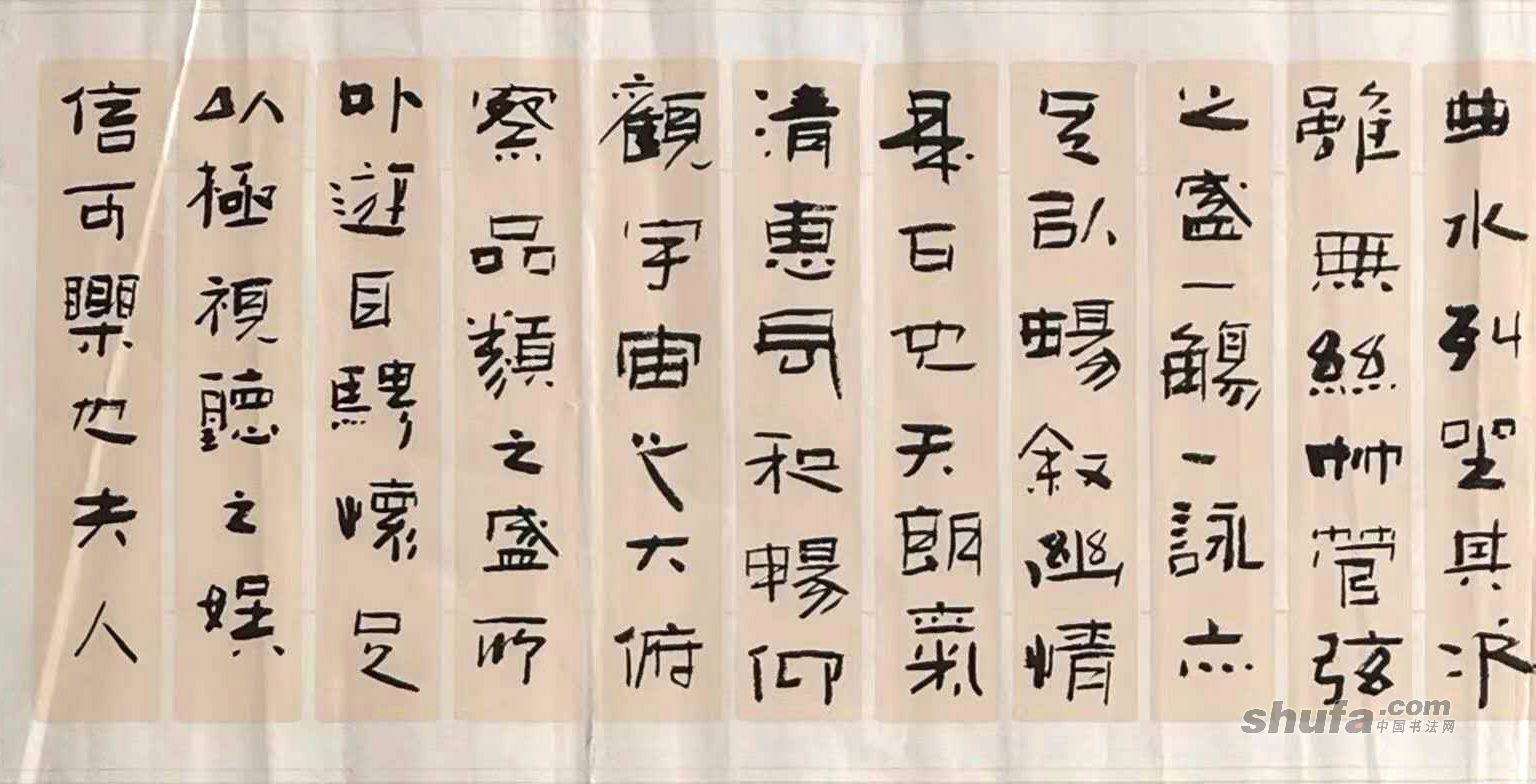 曲水列坐其次
雖無絲竹管弦
之盛一觴一詠亦
足以暢敘幽情
是日也天朗氣
清惠風和暢仰
觀宇宙之大俯
察品類之盛所
以遊目騁懷足
以極視聽之娛
信可樂也夫人
shufa.com
中国书法网